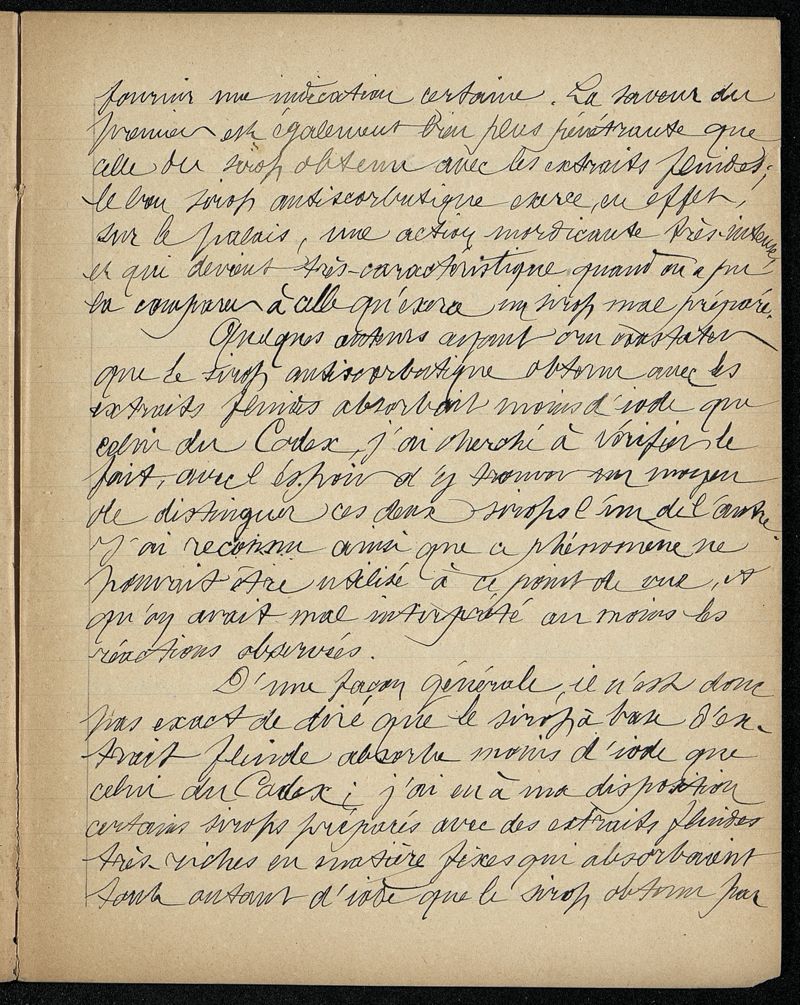 fournir une indication certaine. La saveur du
premier est également bien plus pénétrante que
celle du sirop obtenu avec les extraits fluides;
le bon sirop antiscorbutique exerce, en effet,
sur le palais, une action mordicante très-intense,
et qui devient très-caractéristique quand on a pu
la comparer à celle qu'exerce un sirop mal préparé.
Quelques auteurs ayant cru constater
que le sirop antiscorbutique obtenu avec les
extraits fluides absorbait moins d'iode que
celui du Codex, j'ai cherché à vérifier le
fait, avec l'espoir d'y trouver un moyen
de distinguer ces deux sirops l'un de l'autre.
J'ai reconnu ainsi que ce phénomène ne
pouvait être utilisé à ce point de vue, et
qu'on avait mal interprété au moins les
réactions observées.
D'une façon générale, il n'est donc
pas exact de dire que le sirop à base d'ex-
trait fluide absorbe moins d'iode que
celui du Codex; j'ai eu à ma disposition
certains sirops préparés avec des extraits fluides
très-riches en matière fixes qui absorbaient
tout autant d'iode que le sirop obtenu par